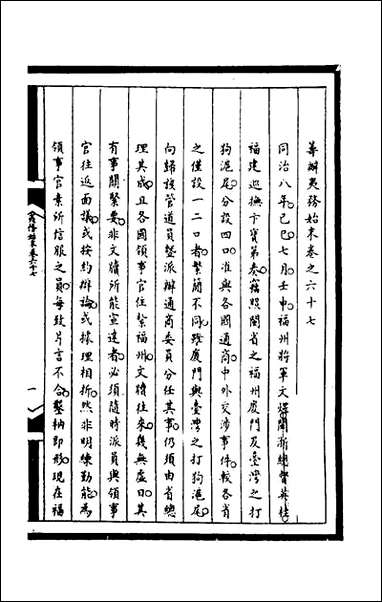 籌辦夷務始末卷之六十七
同治八年己巳七月壬申福州將軍文煜閩浙總督英桂
福建巡撫卞寶第奏竊照閩省之福州廈門及臺灣之打
狗滬尾分設四口准與各國通商中外交涉事件較各省
之僅設一二口者繁簡不同雖廈門與臺灣之打狗滬尾
向歸該管道員暨派辦通商委員分任其事仍須由省總
理其成且各國領事官住紮福州文牘往來幾無虛日其
有事關緊要非文牘所能宣達者必須隨時派員與領事
官往返面議或按約辯論或據理相折然非明練勤能為
領事官素所信服之員每致片言不合鑿枘即形現在福
夷務始末卷六十七
一